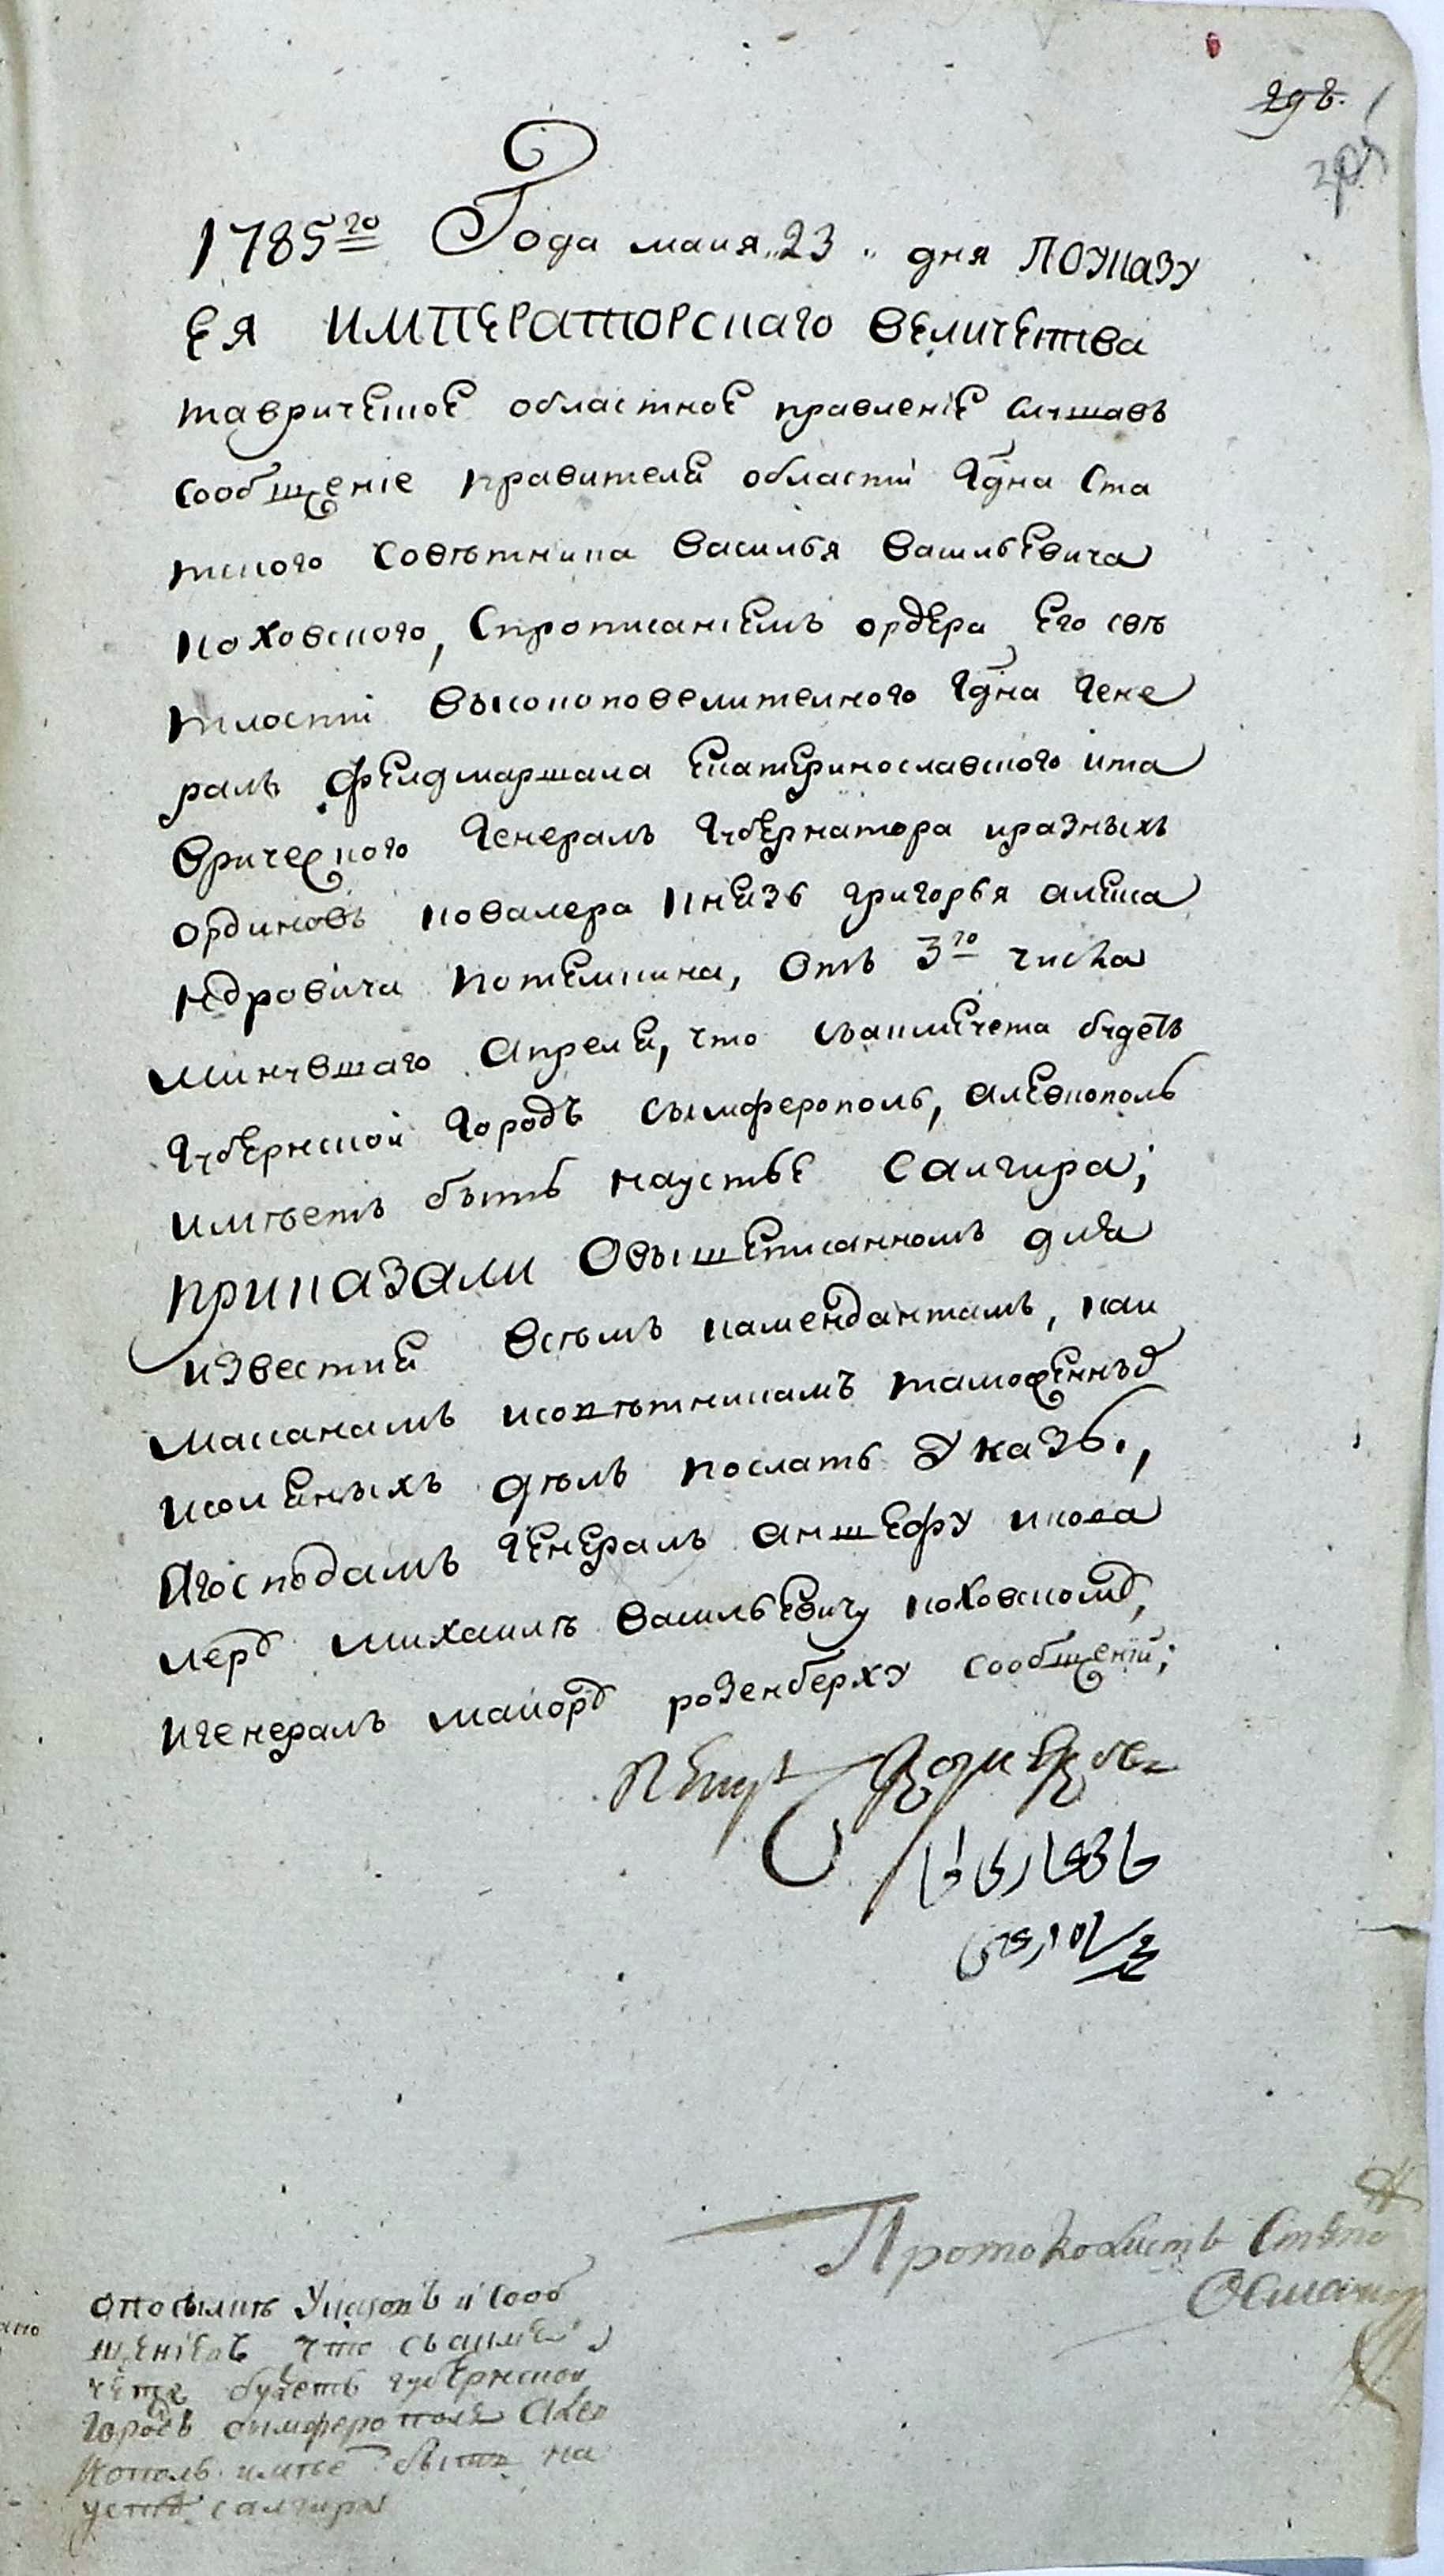 298.
1785го Года маия 23 дня ПО УКАЗУ
ЕЯ ИМПЕРАТОРСКАГО ВЕЛИЧЕСТВА
таврическое областное правленiе слушавъ
сообщенiе правителя области Гдна Ста
тского Советника Василья Васильевича
коховского, Спрописанiемъ ордера Его све
тлости высокоповелителного Гдна Гене
ралъ Фелдмаршала Екатеринославского ита
врического Генералъ Губернатора иразныхъ
ординовъ ковалера князь григорья алекса
ндровича потемкина, отъ 3го числа
минувшаго Апреля, что съакмечета будетъ
Губернской Городъ сымферополь, алевкополь
имѣетъ быть наустье Салгира;
приказали Овышеписанномъ для
известия всѣмъ камендантамъ, кай
маканамъ исоветникамъ таможенныхъ
исоляныхъ дѣлъ послать Указъ,
Агосподамъ Генералъ аншефу икова
леру михаилѣ васильевичу коховскому,
игенералъ маиору розенберху сообщенiи;
Протоколистъ
отпосылкѣ Указовъ и Сооб
щенiевъ что съакме
чета будетъ губернской
городъ симферополь Алев
кополь имѣе быть на
устье салгира